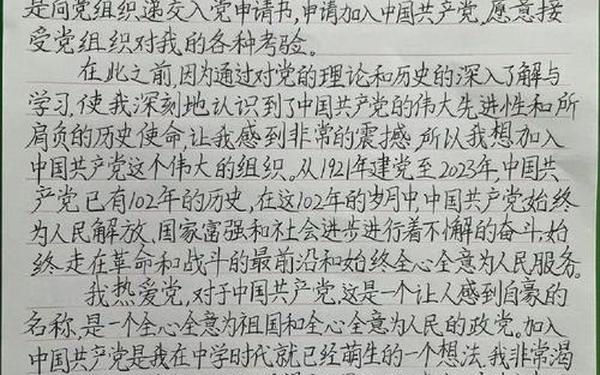 是向党组织递交入党申请书,申请加入中国共产党,愿意接
受党组织对我的各种考验。
在此之前,因为通过对党的理论和历史的深入了解与
学习,使我深刻地认识到了中国共产党的伟大先进性和所
肩负的历史使命,让我感到非常的震撼,所以我想加入
中国共产党这个伟大的组织。从1921年建党至2023年,中国共
产党已有102年的历史,在这102年的岁月中,中国共产党始终
为人民解放、国家富强和社会进步进行着不懈的奋斗,始
终走在革命和战斗的最前沿和始终全心全意为人民服务。
我热爱党,对于中国共产党,这是一个让人感到自豪的
名称,是一个全心全意为祖国和全心全意为人民的政党。加入
中国共产党是我在中学时代就已经萌生的一个想法,我非常渴